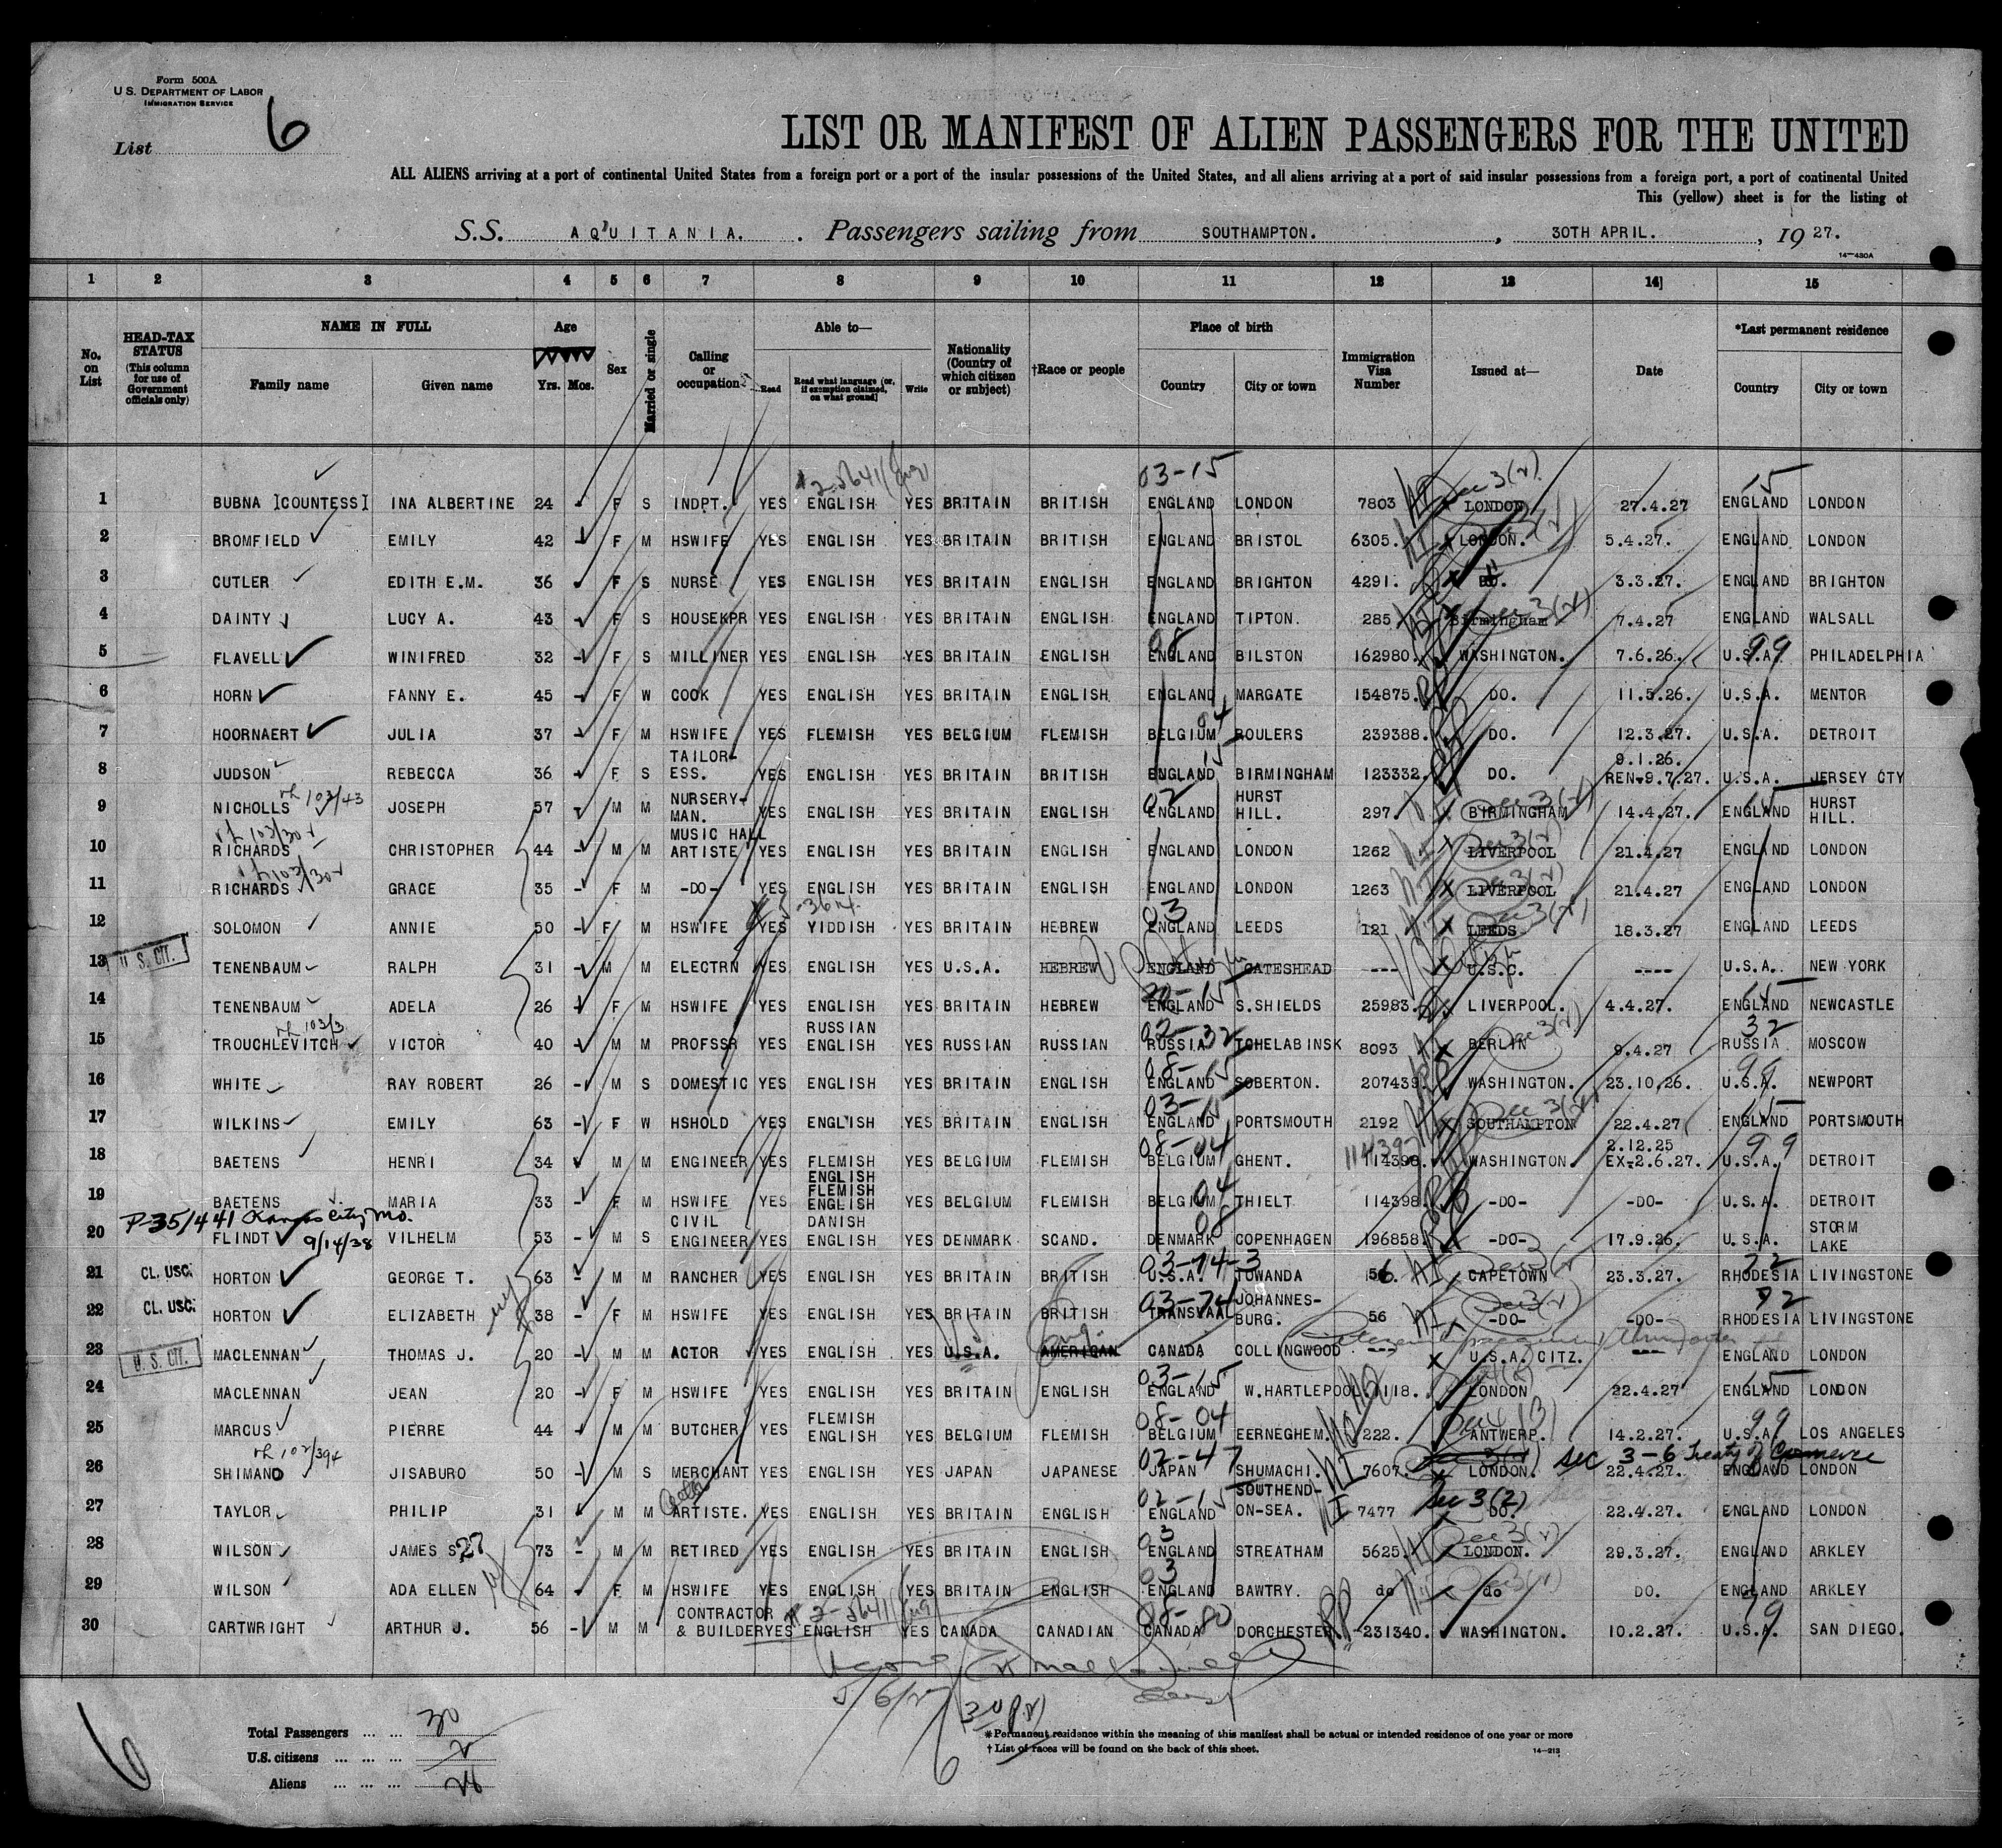 Form 500A
U. S. DEPARTMENT OF LABOR
IMMIGRATION SERVICE
List 6
LIST OR MANIFEST OF ALIEN PASSENGERS FOR THE UNITED
ALL ALIENS arriving at a port of continental United States from a foreign port or a port of the insular possessions of the United States, and all aliens arriving at a port of said insular possessions from a foreign port, a port of continental United
This (yellow) sheet is for the listing of
S.S. AQUITANIA. Passengers sailing from SOUTHAMPTON. , 30TH APRIL. , 19 27.
14—430A
1 2 3 4 5 6 7 8 9 10 11 12 13 14 15
No. on List
HEAD-TAX STATUS (This column for use of Government officials only)
NAME IN FULL Family name Given name
Age Yrs. Mos.
Sex
Married or single
Calling or occupation
Able to— Read Read what language (or, if exemption claimed, on what ground) Write
Nationality (Country of which citizen or subject)
†Race or people
Place of birth Country City or town
Immigration Visa Number
Issued at—
Date
*Last permanent residence Country City or town
03-15
1 BUBNA [COUNTESS] INA ALBERTINE 24 F S INDPT. YES ENGLISH YES BRITAIN BRITISH ENGLAND LONDON 7803 LONDON 27.4.27 ENGLAND LONDON
2 BROMFIELD EMILY 42 F M HSWIFE YES ENGLISH YES BRITAIN BRITISH ENGLAND BRISTOL 6305. LONDON. 5.4.27. ENGLAND LONDON
3 CUTLER EDITH E.M. 36 F S NURSE YES ENGLISH YES BRITAIN ENGLISH ENGLAND BRIGHTON 4291. DO. 3.3.27. ENGLAND BRIGHTON
4 DAINTY LUCY A. 43 F S HOUSEKPR YES ENGLISH YES BRITAIN ENGLISH ENGLAND TIPTON. 285 Birmingham 7.4.27 ENGLAND WALSALL
5 FLAVELL WINIFRED 32 F S MILLINER YES ENGLISH YES BRITAIN ENGLISH ENGLAND BILSTON 162980. WASHINGTON. 7.6.26. U.S.A. PHILADELPHIA
6 HORN FANNY E. 45 F W COOK YES ENGLISH YES BRITAIN ENGLISH ENGLAND MARGATE 154875. DO. 11.5.26. U.S.A. MENTOR
7 HOORNAERT JULIA 37 F M HSWIFE YES FLEMISH YES BELGIUM FLEMISH BELGIUM ROULERS 239388. DO. 12.3.27. U.S.A. DETROIT
8 JUDSON REBECCA 36 F S TAILOR-ESS. YES ENGLISH YES BRITAIN BRITISH ENGLAND BIRMINGHAM 123332. DO. 9.1.26. REN-9.7.27. U.S.A. JERSEY CTY
9 NICHOLLS JOSEPH 57 M M NURSERY-MAN. YES ENGLISH YES BRITAIN ENGLISH ENGLAND HURST HILL. 297. BIRMINGHAM 14.4.27. ENGLAND HURST HILL.
10 RICHARDS CHRISTOPHER 44 M M MUSIC HALL ARTISTE YES ENGLISH YES BRITAIN ENGLISH ENGLAND LONDON 1262 LIVERPOOL 21.4.27 ENGLAND LONDON
11 RICHARDS GRACE 35 F M -DO- YES ENGLISH YES BRITAIN ENGLISH ENGLAND LONDON 1263 LIVERPOOL 21.4.27 ENGLAND LONDON
12 SOLOMON ANNIE 50 F M HSWIFE YES YIDDISH YES BRITAIN HEBREW ENGLAND LEEDS 121 LEEDS 18.3.27 ENGLAND LEEDS
13 U.S. CIT. TENENBAUM RALPH 31 M M ELECTRN YES ENGLISH YES U.S.A. HEBREW ENGLAND GATESHEAD --- U.S.C. ---- U.S.A. NEW YORK
14 TENENBAUM ADELA 26 F M HSWIFE YES ENGLISH YES BRITAIN HEBREW ENGLAND S.SHIELDS 25983. LIVERPOOL. 4.4.27. ENGLAND NEWCASTLE
15 TROUCHLEVITCH VICTOR 40 M M PROFSSR YES RUSSIAN ENGLISH YES RUSSIAN RUSSIAN RUSSIA TCHELABINSK 8093 BERLIN 9.4.27 RUSSIA MOSCOW
16 WHITE RAY ROBERT 26 M S DOMESTIC YES ENGLISH YES BRITAIN ENGLISH ENGLAND SOBERTON. 207439. WASHINGTON. 23.10.26. U.S.A. NEWPORT
17 WILKINS EMILY 63 F W HSHOLD YES ENGLISH YES BRITAIN ENGLISH ENGLAND PORTSMOUTH 2192 SOUTHAMPTON 22.4.27 ENGLAND PORTSMOUTH
18 BAETENS HENRI 34 M M ENGINEER YES FLEMISH ENGLISH YES BELGIUM FLEMISH BELGIUM GHENT. 114397 WASHINGTON. 2.12.25 EX-2.6.27. U.S.A. DETROIT
19 BAETENS MARIA 33 F M HSWIFE YES FLEMISH ENGLISH YES BELGIUM FLEMISH BELGIUM THIELT 114398 -DO- -DO- U.S.A. DETROIT
P-35/441 Kansas City Mo. 9/14/38
20 FLINDT VILHELM 53 M S CIVIL ENGINEER YES DANISH ENGLISH YES DENMARK SCAND. DENMARK COPENHAGEN 196858. -DO- 17.9.26. U.S.A. STORM LAKE
21 CL. USC. HORTON GEORGE T. 63 M M RANCHER YES ENGLISH YES BRITAIN BRITISH U.S.A. TOWANDA 56. CAPETOWN 23.3.27. RHODESIA LIVINGSTONE
22 CL. USC. HORTON ELIZABETH 38 F M HSWIFE YES ENGLISH YES BRITAIN BRITISH TRANSVAAL JOHANNES-BURG. 56 -DO- -DO- RHODESIA LIVINGSTONE
23 U.S. CIT. MACLENNAN THOMAS J. 20 M M ACTOR YES ENGLISH YES U.S.A. AMERICAN Eng. CANADA COLLINGWOOD --- U.S.A. CITZ. --- ENGLAND LONDON
24 MACLENNAN JEAN 20 F M HSWIFE YES ENGLISH YES BRITAIN ENGLISH ENGLAND W.HARTLEPOOL 1118. LONDON 22.4.27 ENGLAND LONDON
25 MARCUS PIERRE 44 M M BUTCHER YES FLEMISH ENGLISH YES BELGIUM FLEMISH BELGIUM EERNEGHEM. 222. ANTWERP. 14.2.27. U.S.A. LOS ANGELES
26 SHIMANO JISABURO 50 M S MERCHANT YES ENGLISH YES JAPAN JAPANESE JAPAN SHUMACHI. 7607. LONDON. Sec 3-6 Treaty of Commerce 22.4.27. ENGLAND LONDON
27 TAYLOR PHILIP 31 M M ARTISTE. YES ENGLISH YES BRITAIN ENGLISH ENGLAND SOUTHEND-ON-SEA. 7477 Sec 3(2) DO. 22.4.27. ENGLAND LONDON
28 WILSON JAMES S. 73 M M RETIRED YES ENGLISH YES BRITAIN ENGLISH ENGLAND STREATHAM 5625. LONDON. 29.3.27. ENGLAND ARKLEY
29 WILSON ADA ELLEN 64 F M HSWIFE YES ENGLISH YES BRITAIN ENGLISH ENGLAND BAWTRY. do do DO. ENGLAND ARKLEY
30 CARTWRIGHT ARTHUR J. 56 M M CONTRACTOR & BUILDER YES ENGLISH YES CANADA CANADIAN CANADA DORCHESTER 231340. WASHINGTON. 10.2.27. U.S.A. SAN DIEGO.
5/6/27
Total Passengers ... ... 30
U.S. citizens ... ... ... 2
Aliens ... ... ...
*Permanent residence within the meaning of this manifest shall be actual or intended residence of one year or more
†List of races will be found on the back of this sheet.
14—213
6
6